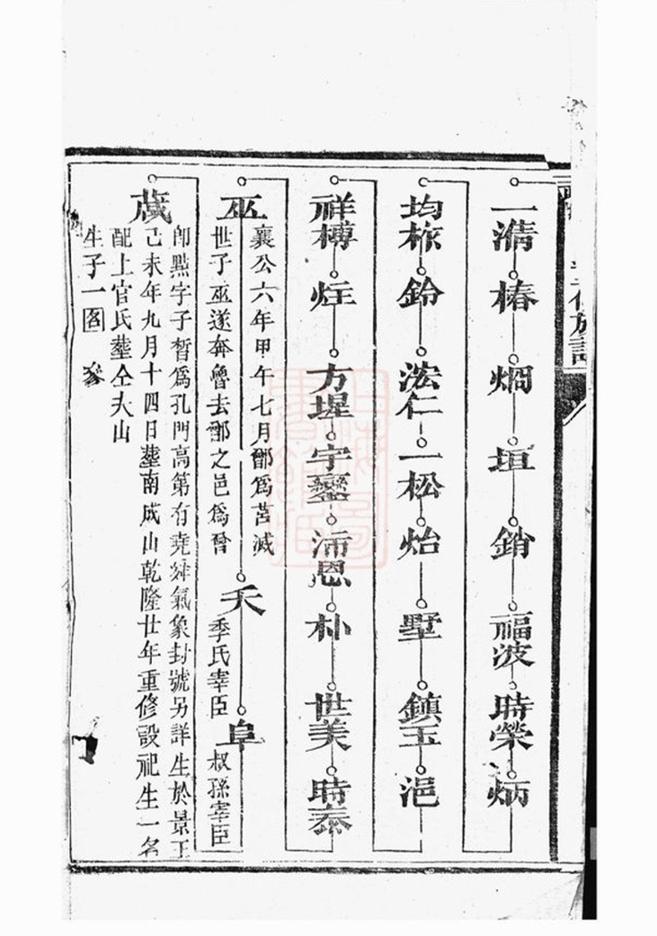 一濟 椿 烱 垣 銷 福波 時榮 炳
均梁 鈴 浤仁 一松 炲 墅 鎮玉 浥
祥榑 炷 方墀 守鑾 沛恩 朴 世美 時泰
巫 襄公六年甲午七月鄫爲莒滅
世子巫遂奔魯去鄫之邑爲曾
夭 季氏宰臣 阜 叔孫宰臣
蒧 卽點字子晳爲孔門高第有堯舜氣象封號另詳生於景王
己未年九月十四日塟南成山乾隆廿年重修設祀生一名
配上官氏塟仝夫山
生子一名 參